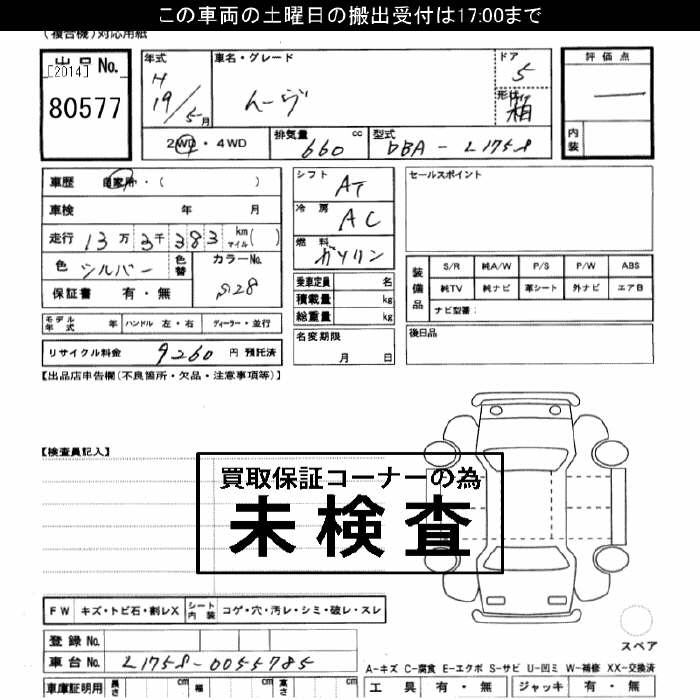 この車両の土曜日の搬出受付は17:00まで
(複合機)対応用紙
出品No. [2014]
80577
年式 H 19/5月
車名・グレード ムーヴ
ドア 5
形状 箱
評価点 —
内装
2WD・4WD
排気量 cc 660
型式 DBA-L175S
車歴 自家用・( )
車検 年 月
走行 13万3千383 km マイル( )
色 シルバー 色替 カラーNo. S28
保証書 有・無
モデル年式 年 ハンドル 左・右 ディーラー・並行
リサイクル料金 9260 円 預託済
シフト AT
冷房 AC
燃料 ガソリン
乗車定員 名
積載量 kg
総重量 kg
名変期限 月 日
セールスポイント
装備品 S/R 純A/W P/S P/W ABS
純TV 純ナビ 革シート 外ナビ エアB
ナビ型番:
後日品
【出品店申告欄(不良箇所・欠品・注意事項等)】
【検査員記入】
買取保証コーナーの為
未検査
FW キズ・トビ石・割レX シート内装 コゲ・穴・汚レ・シミ・破レ・スレ
登録No.
車台No. L175S-0055785
車庫証明用 長さ cm 幅 cm 高さ cm
スペア
A-キズ C-腐食 E-エクボ S-サビ U-凹ミ W-補修 XX-交換済
工具 有・無 ジャッキ 有・無